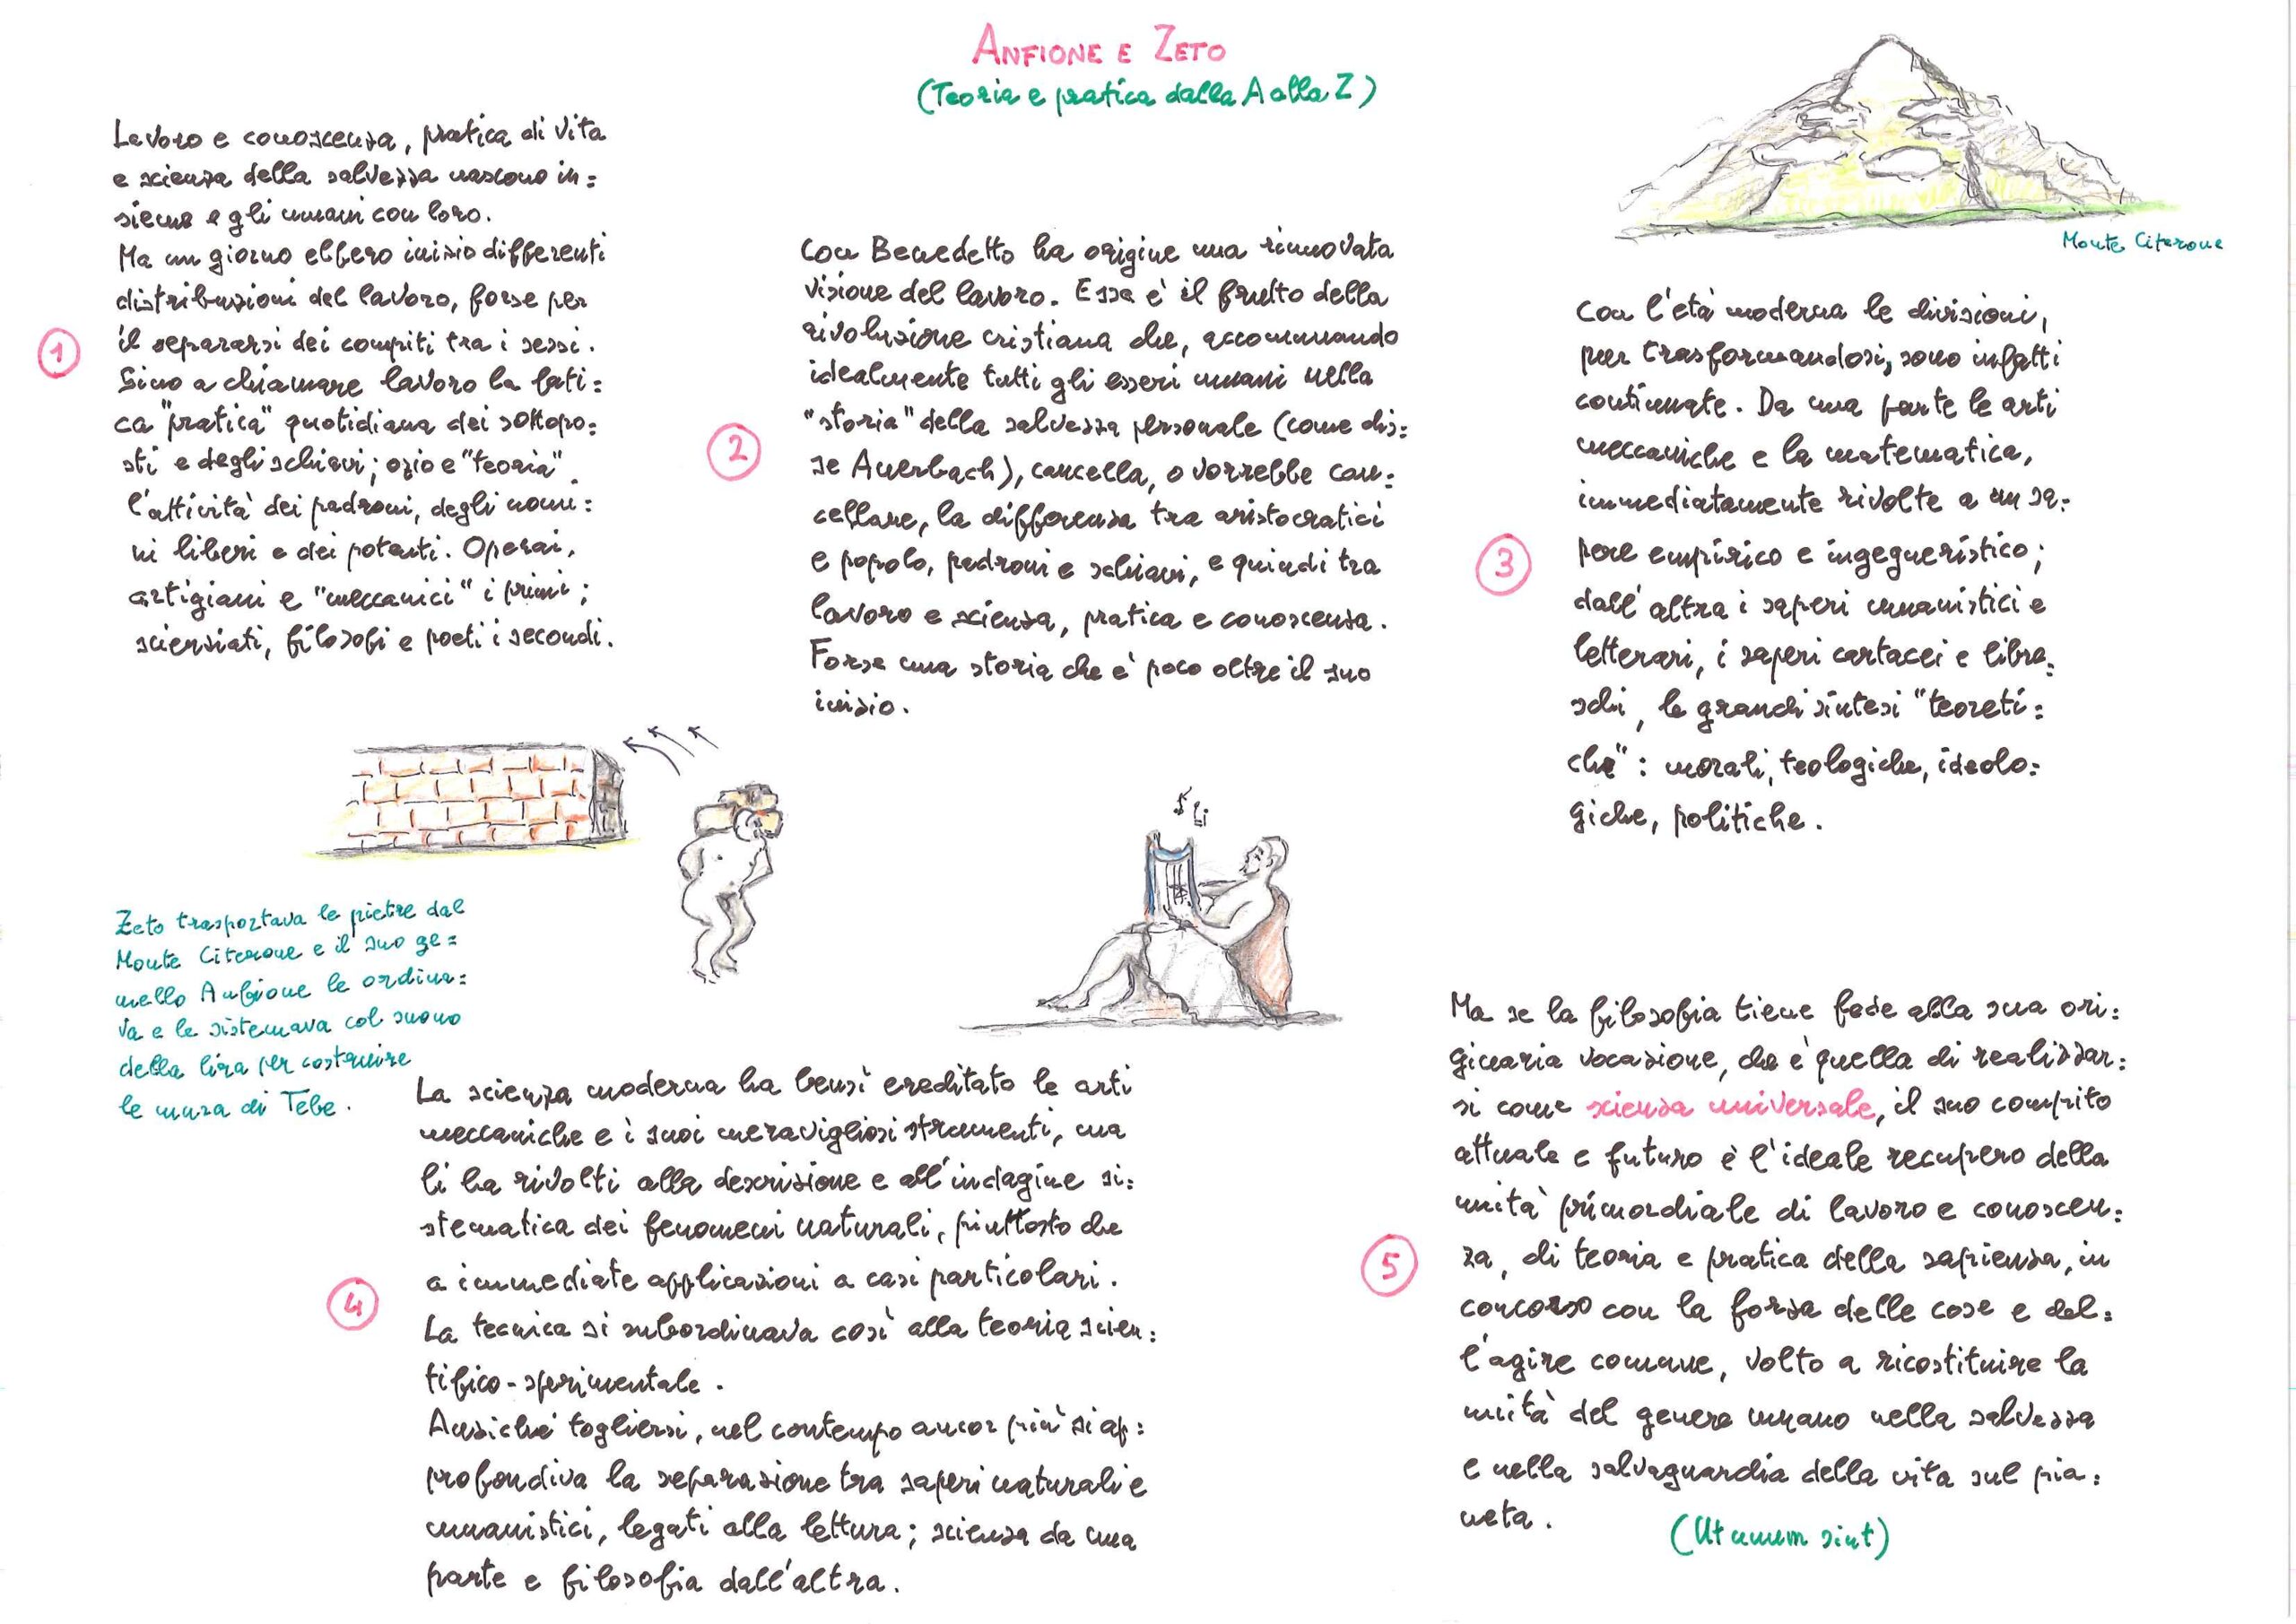 ANFIONE E ZETO
(Teoria e pratica dalla A alla Z)
Lavoro e conoscenza, pratica di vita
e scienza della salvezza nascono in=
sieme e gli umani con loro.
Ma un giorno ebbero inizio differenti
distribuzioni del lavoro, forse per
il separarsi dei compiti tra i sessi.
Sino a chiamare lavoro la fati=
ca "pratica" quotidiana dei sottopo=
sti e degli schiavi; ozio e "teoria"
l'attività dei padroni, degli uomi=
ni liberi e dei potenti. Operai,
artigiani e "meccanici" i primi;
scienziati, filosofi e poeti i secondi.
1
Con Benedetto ha origine una rinnovata
visione del lavoro. Essa è il frutto della
rivoluzione cristiana che, accomunando
idealmente tutti gli esseri umani nella
"storia" della salvezza personale (come dis=
se Auerbach), cancella, o vorrebbe can=
cellare, la differenza tra aristocratici
e popolo, padroni e schiavi, e quindi tra
lavoro e scienza, pratica e conoscenza.
Forse una storia che è poco oltre il suo
inizio.
2
Monte Citerone
Con l'età moderna le divisioni,
pur trasformandosi, sono infatti
continuate. Da una parte le arti
meccaniche e la matematica,
immediatamente rivolte a un sa=
pere empirico e ingegneristico;
dall'altra i saperi umanistici e
letterari, i saperi cartacei e libre=
schi, le grandi sintesi "teoreti=
che": morali, teologiche, ideolo=
giche, politiche.
3
Zeto trasportava le pietre dal
Monte Citerone e il suo ge=
mello Anfione le ordina=
va e le sistemava col suono
della lira per costruire
le mura di Tebe.
La scienza moderna ha bensì ereditato le arti
meccaniche e i suoi meravigliosi strumenti, ma
li ha rivolti alla descrizione e all'indagine si=
stematica dei fenomeni naturali, piuttosto che
a immediate applicazioni a casi particolari.
La tecnica si subordinava così alla teoria scien=
tifico-sperimentale.
Anziché togliersi, nel contempo ancor più si ap=
profondiva la separazione tra saperi naturali e
umanistici, legati alla lettura; scienza da una
parte e filosofia dall'altra.
4
Ma se la filosofia tiene fede alla sua ori=
ginaria vocazione, che è quella di realizzar=
si come scienza universale, il suo compito
attuale e futuro è l'ideale recupero della
unità primordiale di lavoro e conoscen=
za, di teoria e pratica della sapienza, in
concorso con la forza delle cose e del=
l'agire comune, volto a ricostituire la
unità del genere umano nella salvezza
e nella salvaguardia della vita sul pia=
neta.
(Ut unum sint)
5